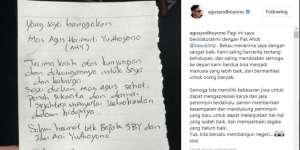 Yang saya banggakan
Mas Agus Harimurti Yudhoyono
(AHY)
Terima kasih atas kunjungan
dan dukungannya untuk saya
dan keluarga
Saya doakan mas agus sehat,
penuh sukacita dan damai
sejahtera
dalam hidupnya.
Salam hormat utk Bapak SBY dan
Ibu Ani Yudhoyono
agusyudhoyono
agusyudhoyono Pagi ini saya
bersilaturahmi dengan Pak Ahok
Beliau menerima saya dengan
sangat baik. Kami saling bercerita tentang
kehidupan, dan saling mendoakan semoga
ke depan kami berdua bisa menjadi
manusia yang lebih baik, dan bermanfaat
untuk orang banyak.
Semoga kita memiliki kebesaran jiwa untuk
dapat mengapresiasi karya dan jasa
pemimpin terdahulu, sambil memberikan
kesempatan dan mendukung pemimpin
yang baru untuk dapat melanjutkan hal-hal
yang sudah baik, dan memperbaiki segala
yang belum baik.
Yuk, kita bersatu membangun negeri...